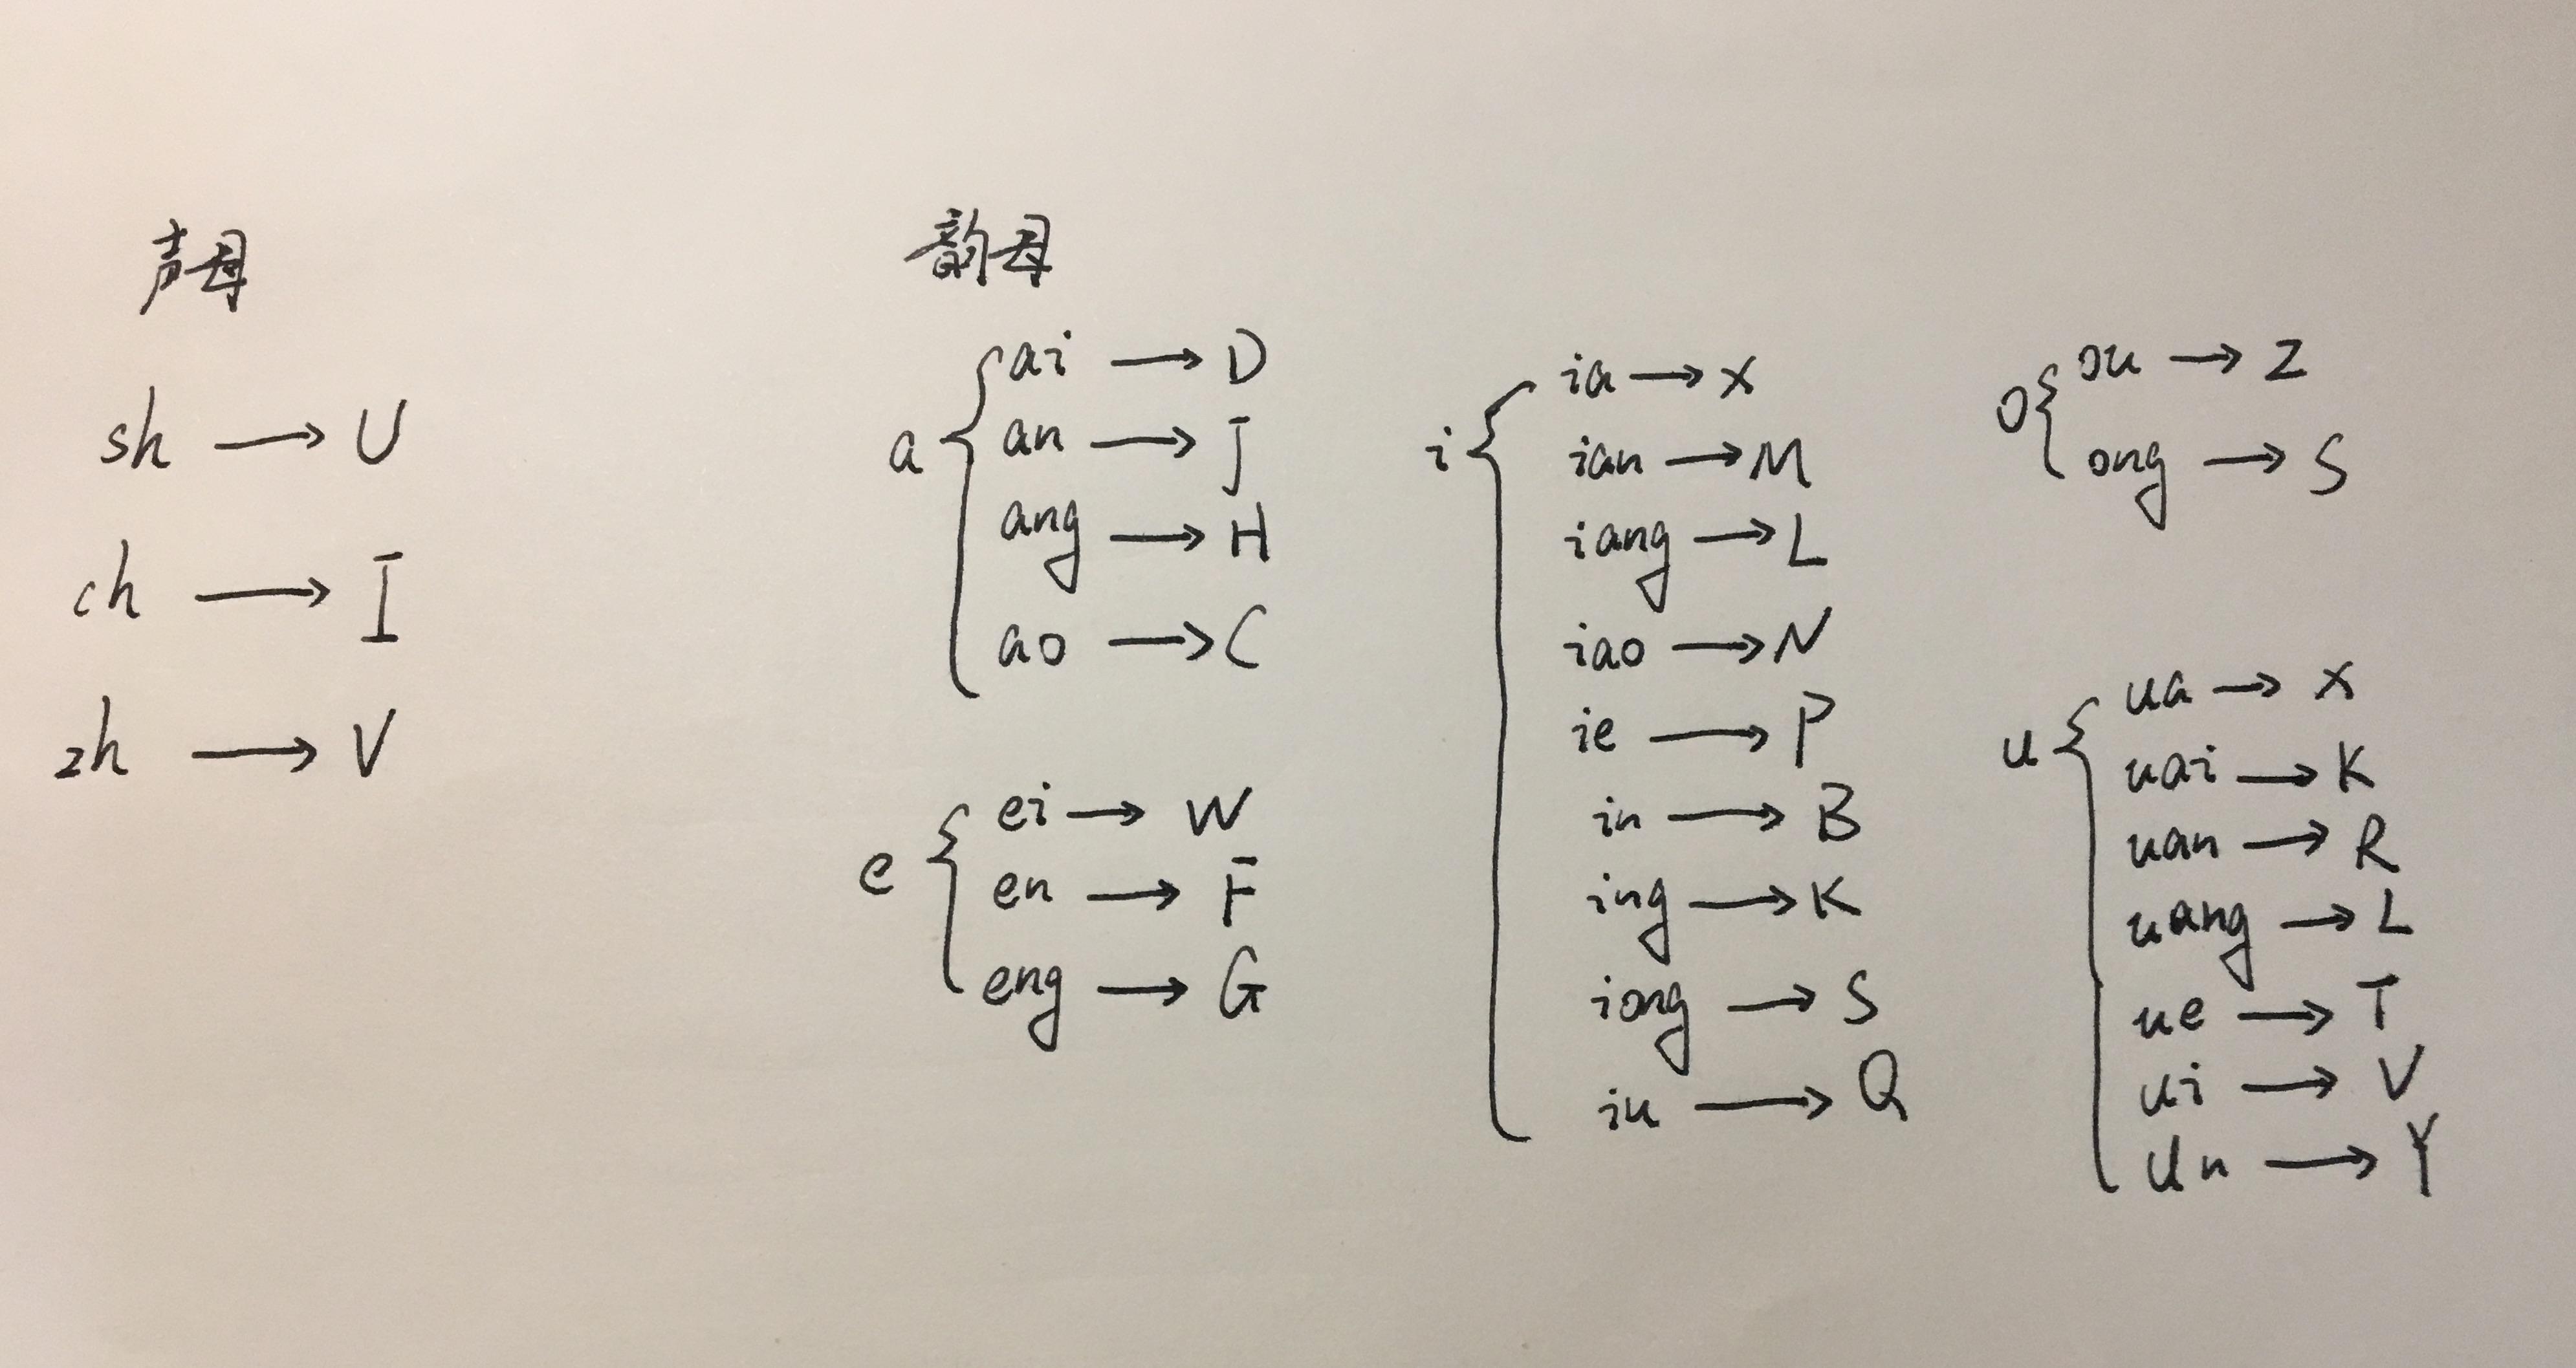 声母
sh → U
ch → I
zh → V
韵母
a
ai → D
an → J
ang → H
ao → C
e
ei → W
en → F
eng → G
i
ia → X
ian → M
iang → L
iao → N
ie → P
in → B
ing → K
iong → S
iu → Q
o
ou → Z
ong → S
u
ua → X
uai → K
uan → R
uang → L
ue → T
ui → V
un → Y